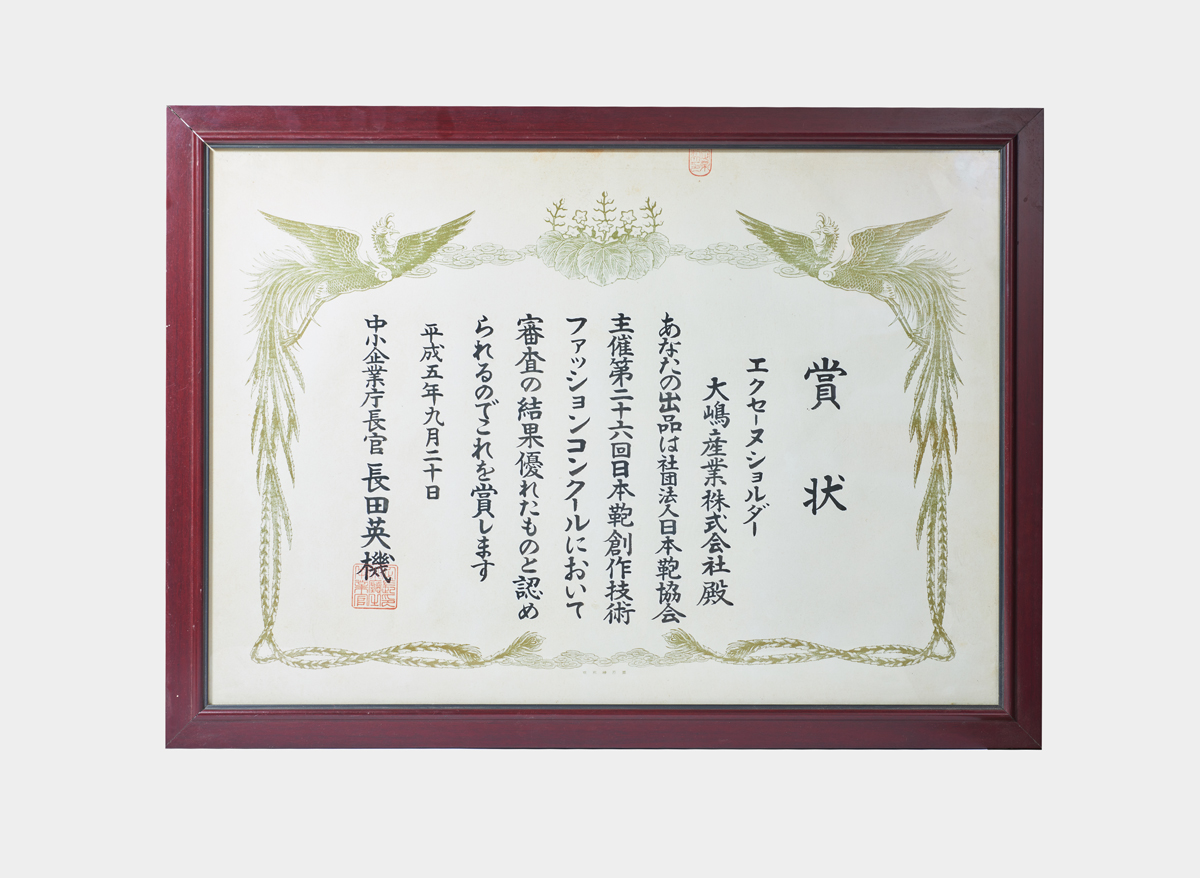 賞状
エクセーヌショルダー
大嶋産業株式会社殿
あなたの出品は社団法人日本鞄協会
主催第二十六回日本鞄創作技術
ファッションコンクールにおいて
審査の結果優れたものと認め
られるのでこれを賞します
平成五年九月二十日
中小企業庁長官 長田英機